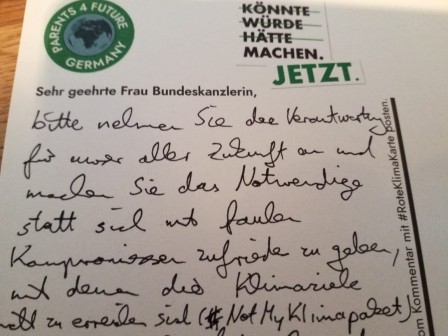 PARENTS 4 FUTURE
GERMANY
KÖNNTE
WÜRDE
HÄTTE
MACHEN.
JETZT.
Sehr geehrte Frau Bundeskanzlerin,
bitte nehmen Sie die Verantwortung
für unser aller Zukunft an und
machen Sie das Notwendige
statt sich mit faulen
Kompromissen zufriede zu geben,
mit denen die Klimaziele
zu erreichen sind (#NotMyKlimapaket)
om Kommentar mit #RoteKlimaKarte posten.